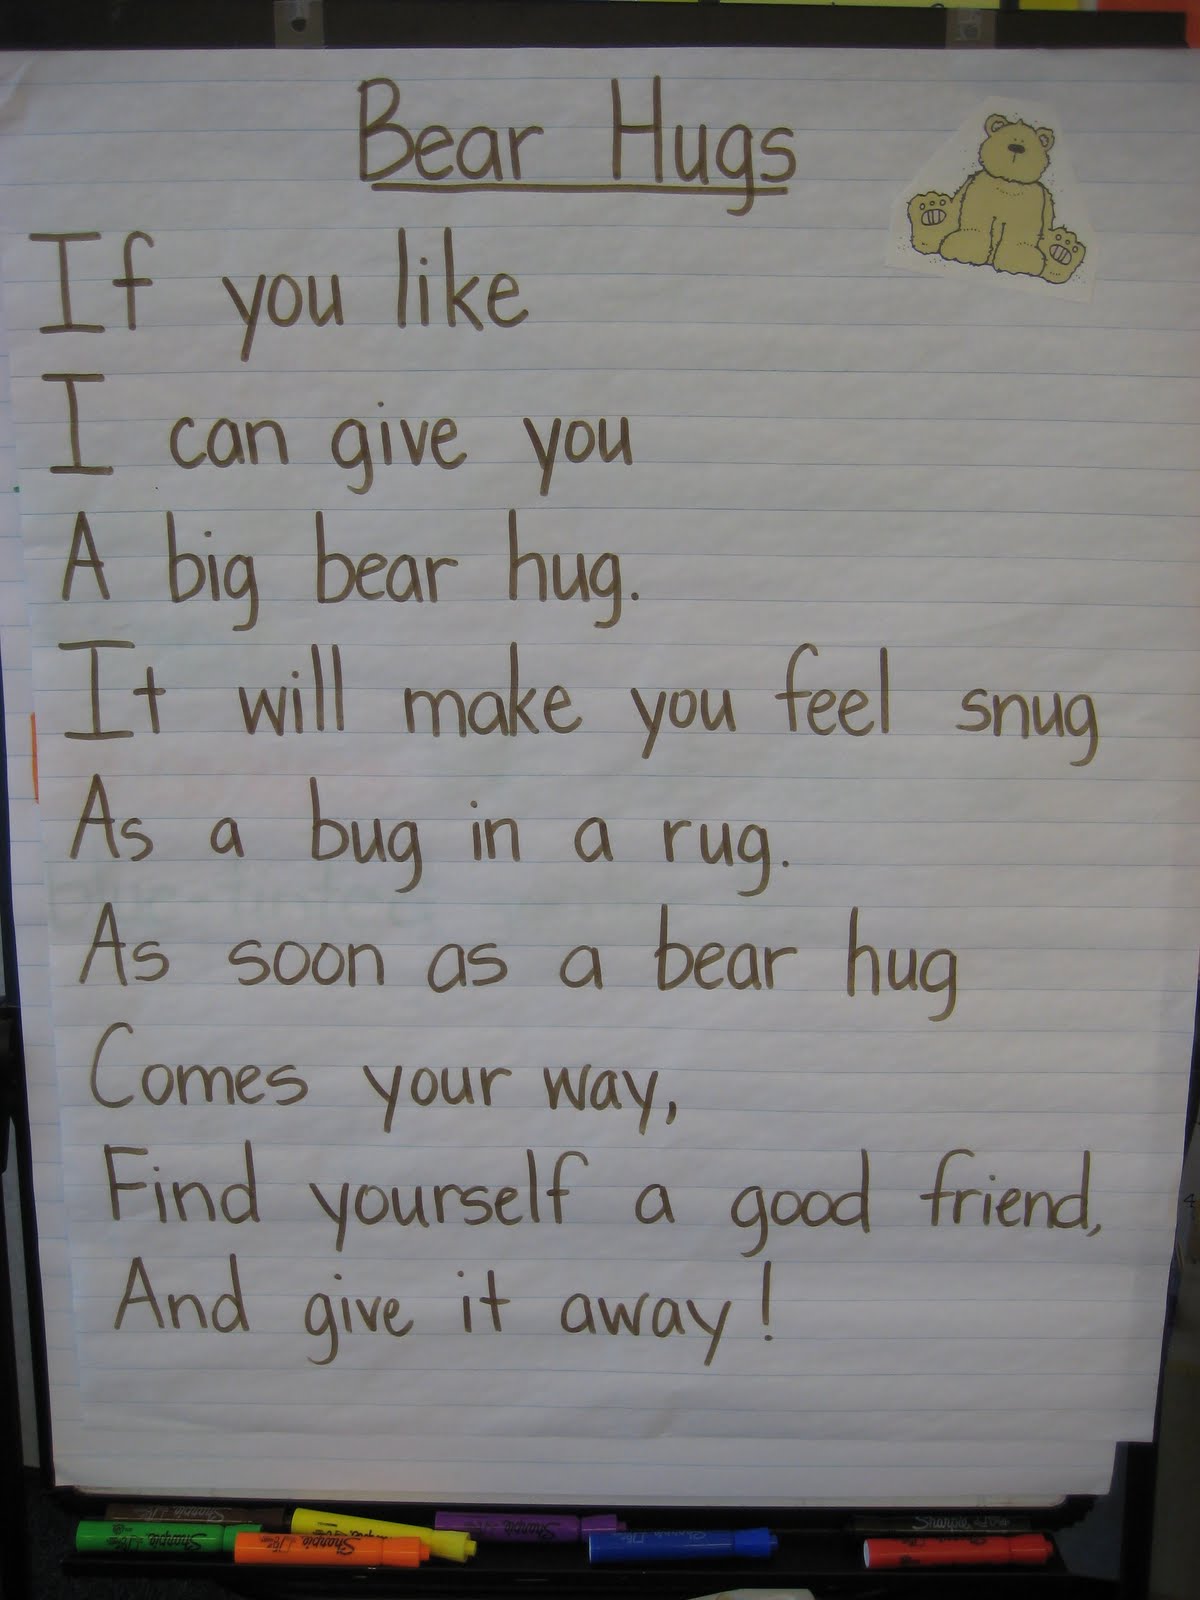 Bear Hugs
If you like
I can give you
A big bear hug.
It will make you feel snug
As a bug in a rug.
As soon as a bear hug
Comes your way,
Find yourself a good friend,
And give it away!
Sharpie
Sharpie
Sharpie
Sharpie